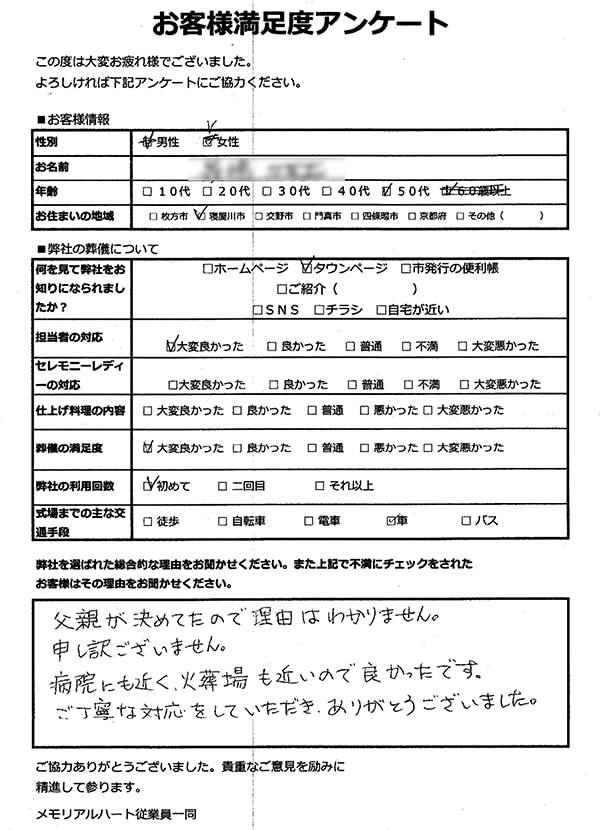 お客様満足度アンケート
この度は大変お疲れ様でございました。
よろしければ下記アンケートにご協力ください。
■お客様情報
性別 ☑男性 ☑女性
お名前
年齢 □10代 □20代 □30代 □40代 ☑50代 ☑60歳以上
お住まいの地域 □枚方市 ☑寝屋川市 □交野市 □門真市 □四條畷市 □京都府 □その他（ ）
■弊社の葬儀について
何を見て弊社をお知りになられましたか？ □ホームページ ☑タウンページ □市発行の便利帳
□ご紹介（ ）
□SNS □チラシ □自宅が近い
担当者の対応 ☑大変良かった □良かった □普通 □不満 □大変悪かった
セレモニーレディーの対応 □大変良かった □良かった □普通 □不満 □大変悪かった
仕上げ料理の内容 □大変良かった □良かった □普通 □悪かった □大変悪かった
葬儀の満足度 ☑大変良かった □良かった □普通 □悪かった □大変悪かった
弊社の利用回数 ☑初めて □二回目 □それ以上
式場までの主な交通手段 □徒歩 □自転車 □電車 ☑車 □バス
弊社を選ばれた総合的な理由をお聞かせください。また上記で不満にチェックをされた
お客様はその理由をお聞かせください。
父親が決めてたので理由はわかりません。
申し訳ございません。
病院にも近く、火葬場も近いので良かったです。
ご丁寧な対応をしていただき、ありがとうございました。
ご協力ありがとうございました。貴重なご意見を励みに
精進して参ります。
メモリアルハート従業員一同